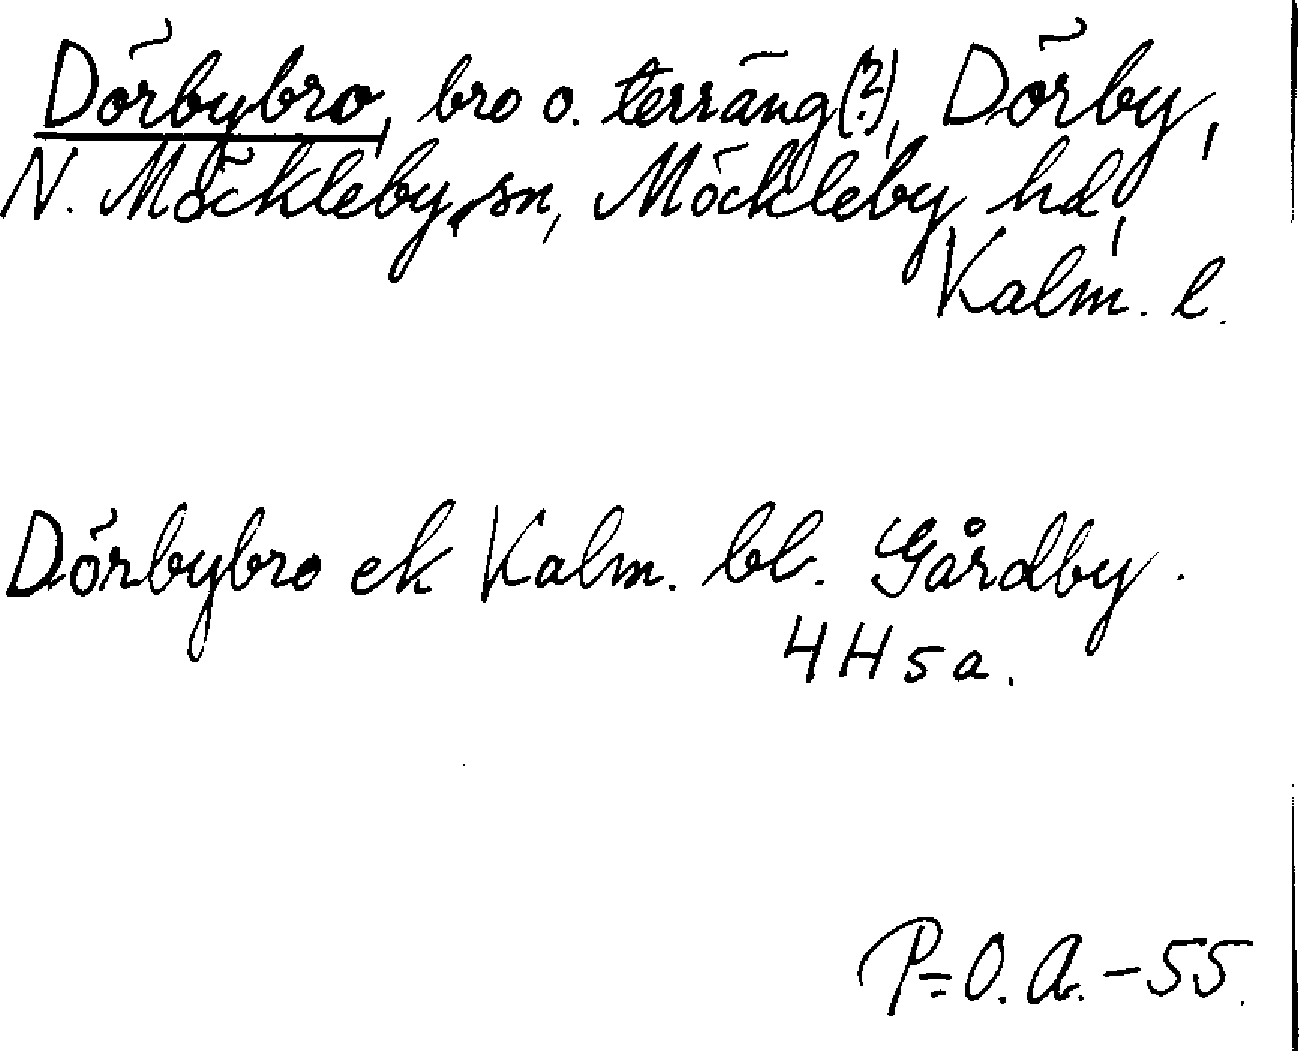 Dörbybro, bro o. terräng(?), Dörby,
N. Möckleby sn, Möckleby hd,
Kalm. l.
Dörbybro ek Kalm. bl. Gårdby.
4H5a.
P=O.A.-55.